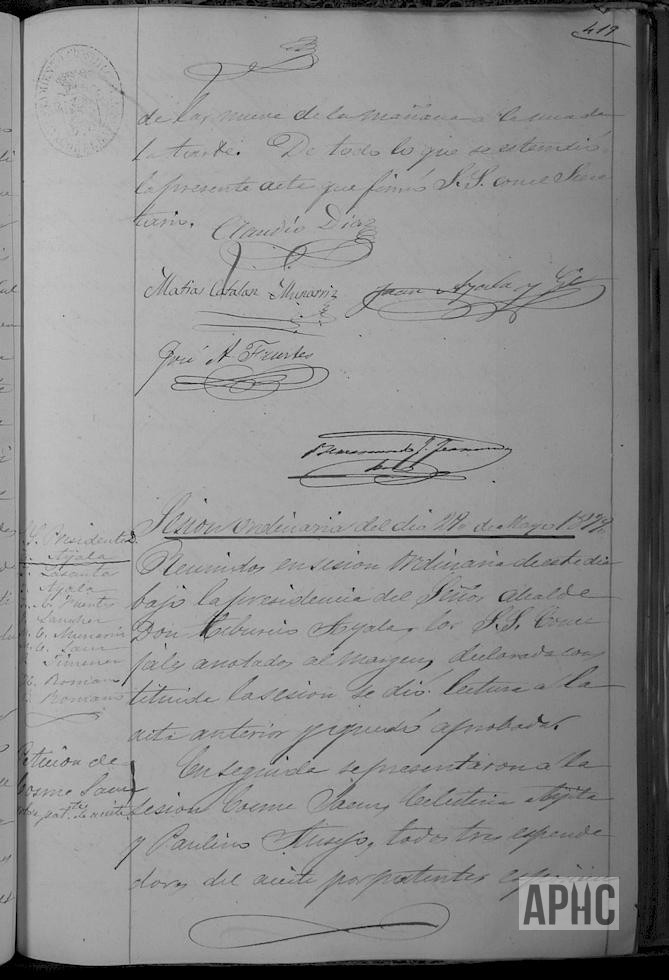 419
de las nueve de la mañana a la una de
la tarde. De todo lo que se estendió
la presente acta que firmó S.S. con el Secre
tario.
Claudio Diaz
Matias Catalan Munarriz
Juan Ayala y Gil
José A Fuertes
Sesion ordinaria del dia 29 de Mayo
Reunidos en sesion ordinaria de este dia
bajo la presidencia del Señor Alcalde
Don Tiburcio Ayala, los S.S. Conce
jales anotados al margen, declarada cons
tituida la sesion se dió lectura a la
acta anterior y quedó aprobada.
En seguida se presentaron a la
sesion Cosme Saenz Celestina
y Paulino todos tres espende
dores del aceite por patentes
S. Presidente
Ayala
Lasanta
Ayala
C. Fuertes
Sancher
C. Munarriz
C. Saenz
Jimenez
Roman
Romano
Peticion de
Cosme Saenz
pat.te de aceite
APHC